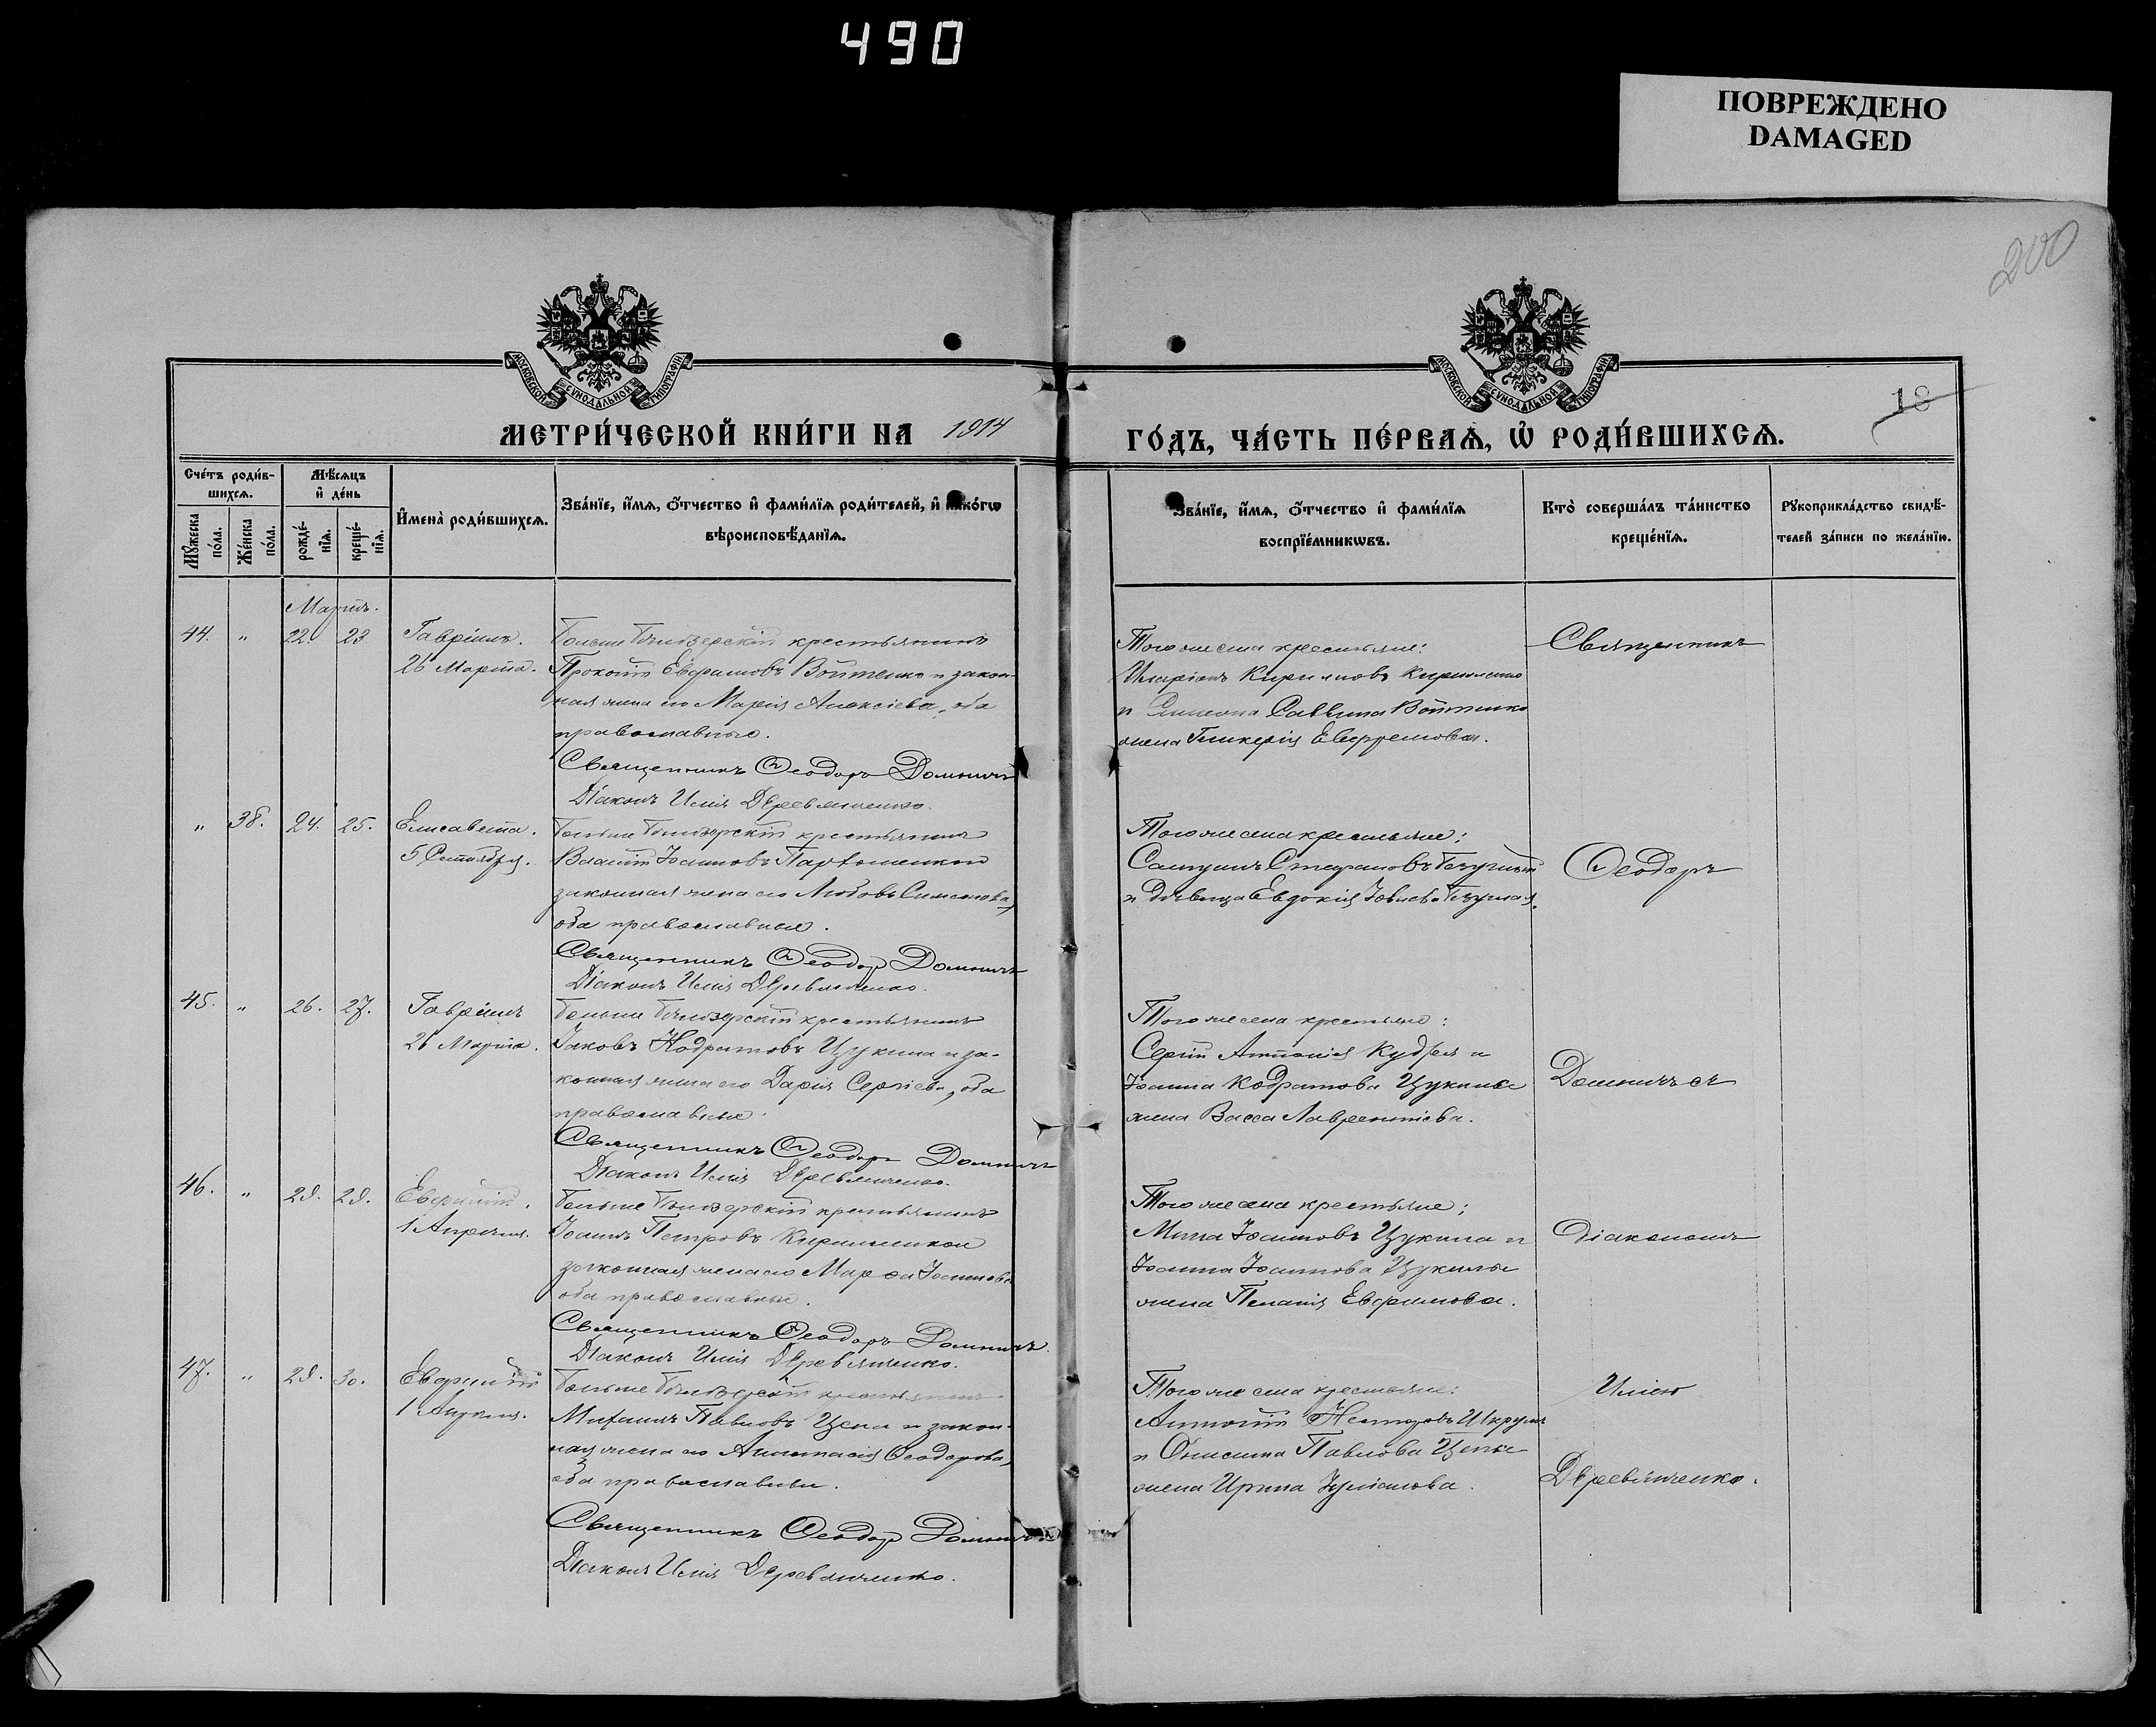 490
ПОВРЕЖДЕНО
DAMAGED
200
МОСКОВСКОЙ СѴНОДАЛЬНОЙ ТИПОГРАФІИ
МОСКОВСКОЙ СѴНОДАЛЬНОЙ ТИПОГРАФІИ
18
МЕТРИ́ЧЕСКОЙ КНИ́ГИ НА 1914
ГО́ДЪ, ЧА́СТЬ ПЕ́РВАѦ, Ѡ҆ РОДИ́ВШИХСѦ.
Сче́тъ роди́в-
шихсѧ.
Мѣ́сѧцъ
и҆ де́нь
Мꙋ́жеска по́ла.
Же́нска по́ла.
рожде́-нїѧ.
креще́-нїѧ.
И҆мена̀ роди́вшихсѧ.
Зва́нїе, и҆́мѧ, ѻ҆́тчество и҆ фами́лїѧ роди́телей, и҆ како́гѡ
вѣроисповѣ́данїѧ.
Зва́нїе, и҆́мѧ, ѻ҆́тчество и҆ фами́лїѧ
воспрїе́мникѡвъ.
Кто̀ соверша́лъ та́инство
креще́нїѧ.
Рꙋкоприкла́дство свидѣ́-
телей за́писи по жела́нїю.
Мартъ.
44. " 22. 23 Гавріилъ.
26 Марта.
Больше Бѣлозерскій крестьянинъ
Прокопій Евфимовъ Войтенко и закон-
ная жена его Марія Алексіева, оба
православные.
Священникъ Ѳеодоръ Домничъ
Діаконъ Илія Деревянченко.
Того же села крестьяне:
Иларіонъ Кириловъ Кириленко
и Симеона Саввина Войтенко
жена Гликерія Евфремова.
Священникъ
" 38. 24. 25. Елисавета.
5 Сентября.
Больше Бѣлозерскій крестьянинъ
Власій Іоанновъ Пархоменко и
законная жена его Любовь Симеонова,
оба православные.
Священникъ Ѳеодоръ Домничъ
Діаконъ Илія Деревянченко.
Того же села крестьяне:
Стефановъ
и дѣвица Евдокія
Ѳеодоръ
45. " 26. 27. Гавріилъ
26 Марта.
Больше Бѣлозерскій крестьянинъ
Іаковъ Кодратовъ Цукила и за-
конная жена его Дарія Сергіева, оба
православные.
Священникъ Ѳеодоръ Домничъ
Діаконъ Илія Деревянченко.
Того же села крестьяне:
Сергій
Іоанна Кодратова Цукилы
жена Васса Лаврентіева.
Домничъ съ
46. " 28. 29.
1 Апрѣля.
Больше Бѣлозерскій крестьянинъ
Іоаннъ Петровъ Кириленко и
законная жена его Марѳа Іоаннова
оба православные.
Священникъ Ѳеодоръ Домничъ
Діаконъ Илія Деревянченко.
Того же села крестьяне:
Мина Іоанновъ Цукила и
Іоанна Іоаннова Цукилы
жена Пелагія Евфимова.
Діакономъ
47. " 29. 30.
1 Апрѣля.
Больше Бѣлозерскій крестьянинъ
Михаилъ Павловъ Цепа и закон-
ная жена его Анастасія Ѳеодорова,
оба православные.
Священникъ Ѳеодоръ Домничъ
Діаконъ Илія Деревянченко.
Того же села крестьяне:
Несторовъ
и Онисима Павлова Цепы
жена Ирина
Иліею
Деревянченко.